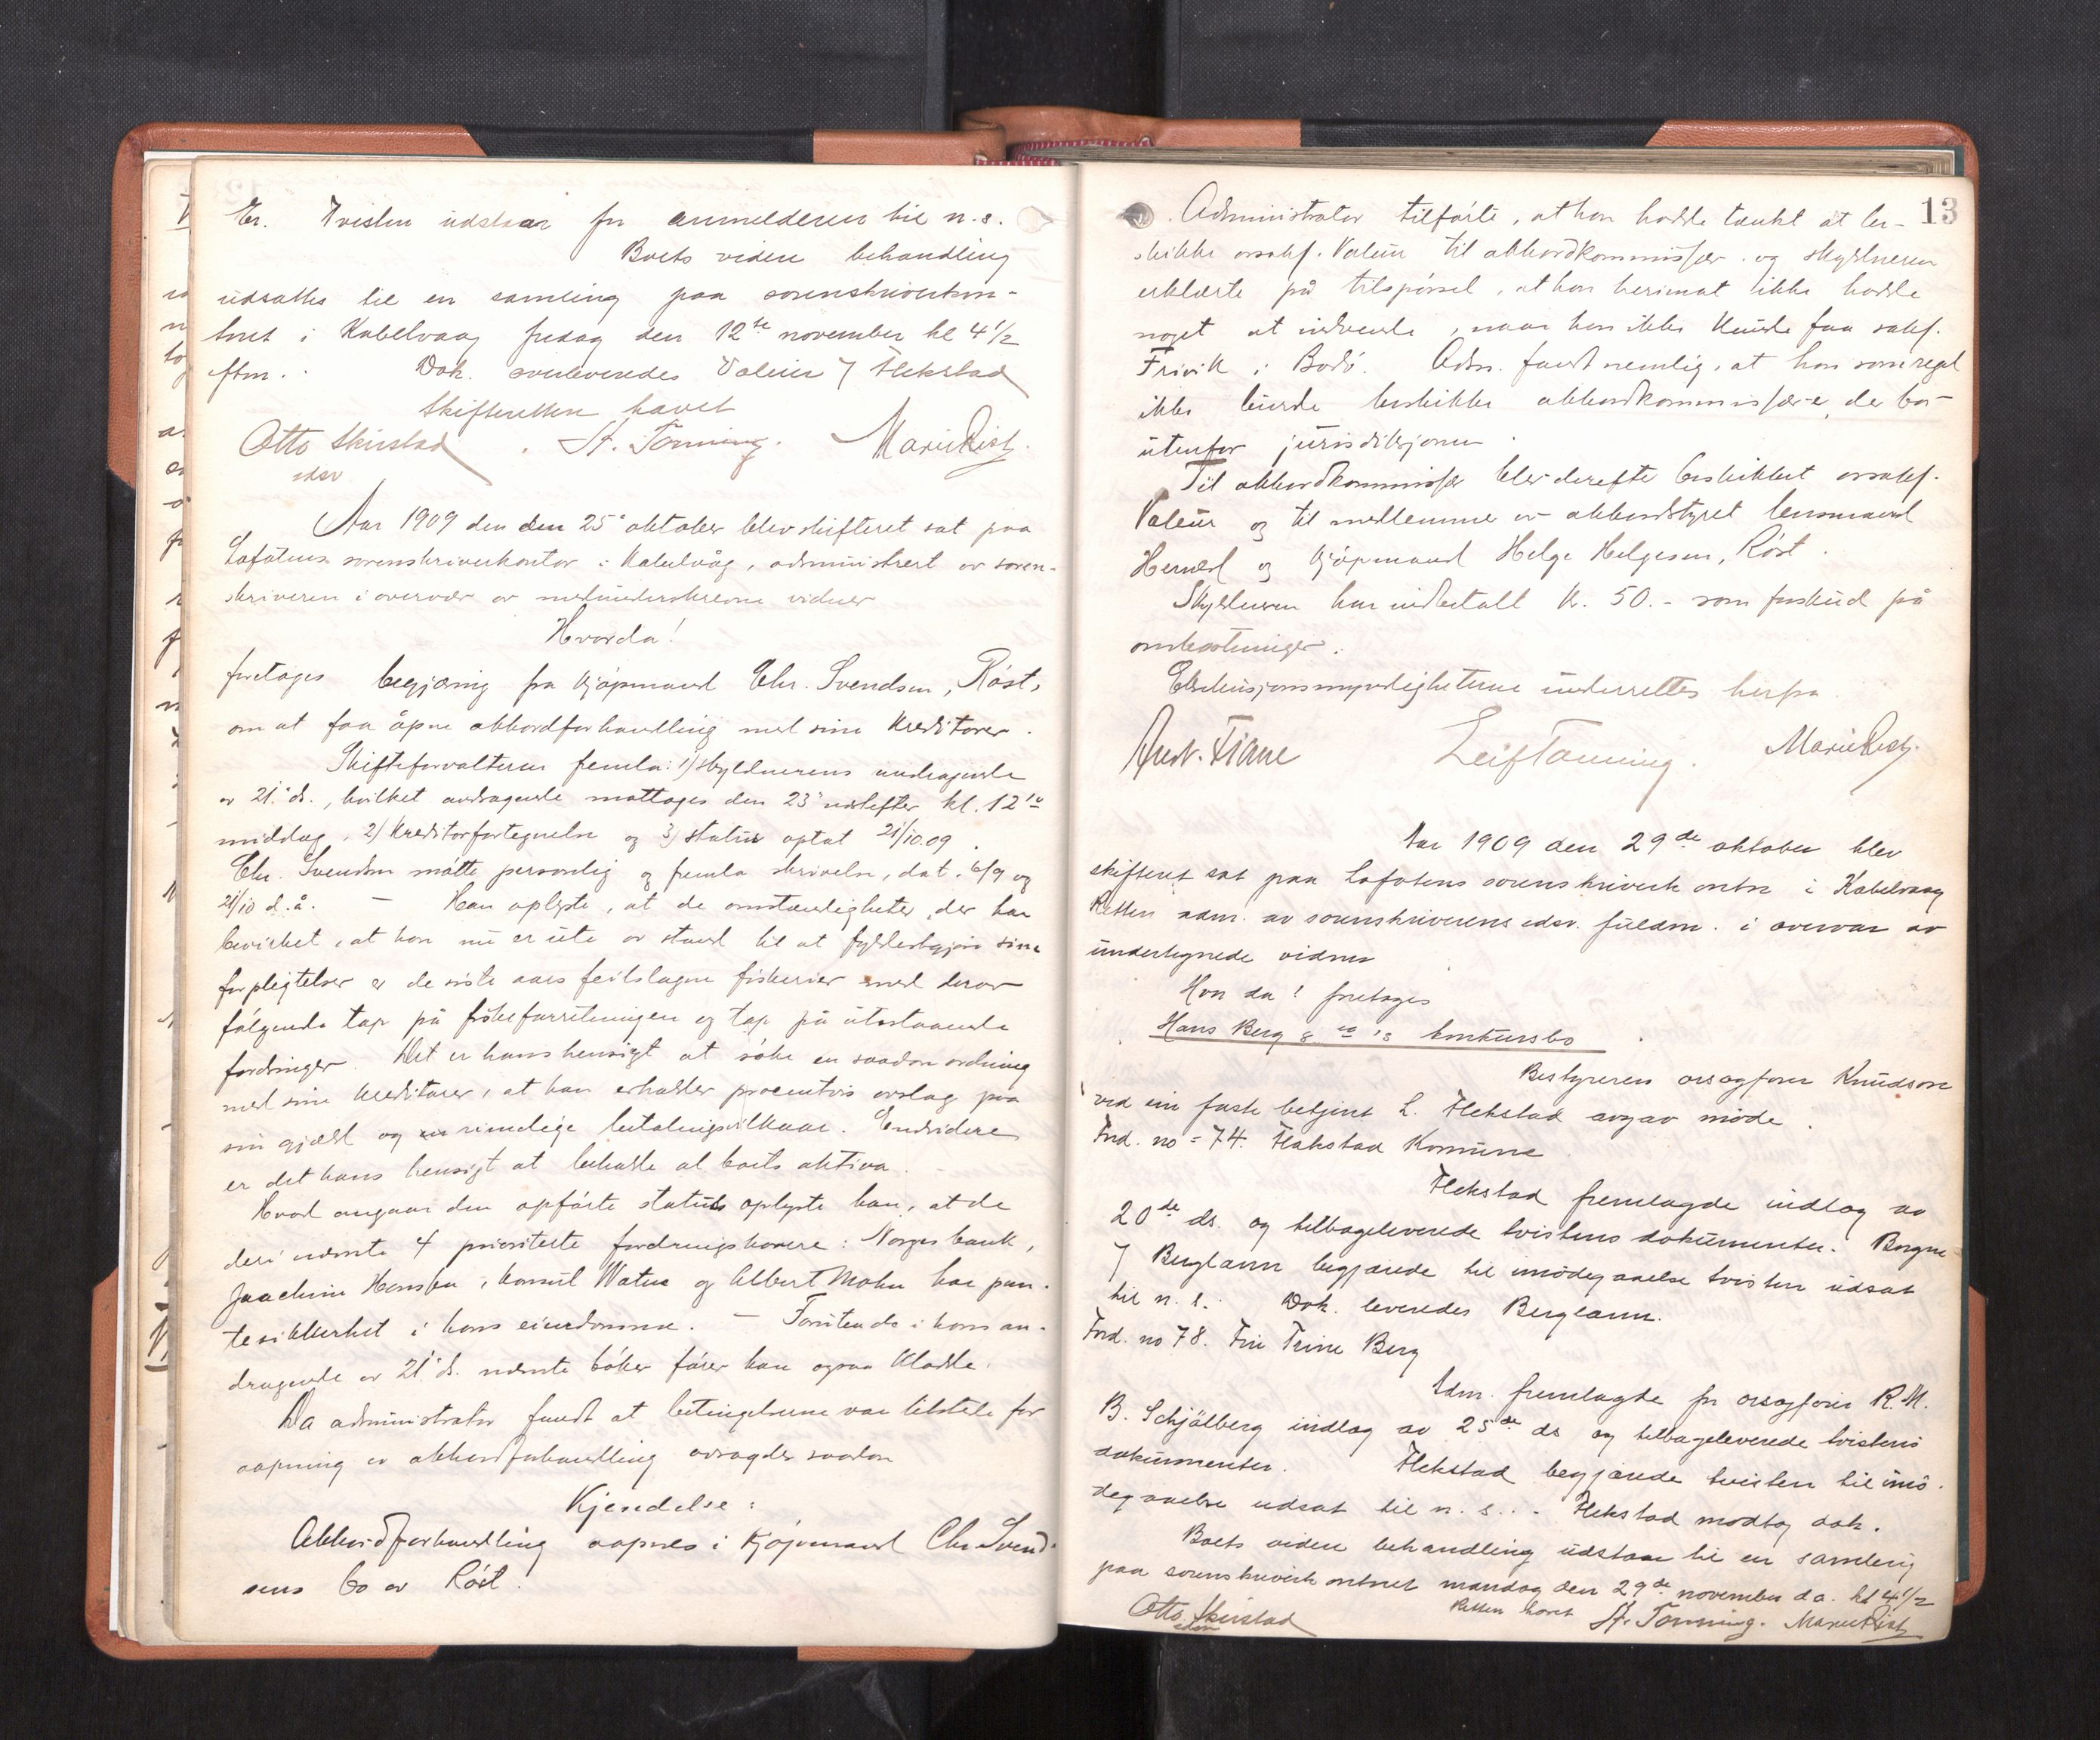 Er. Tvisten udstaar for anmelderen til n. s.
Boets videre behandling
udsattes til en samling paa sorenskriverkon-
toret i Kabelvaag fredag den 12te november kl 4 1/2
eftm. Dok. overleveredes Valeur / Flekstad
Skifteretten hævet
Otto Skirstad St. Tonning. Marie Rist.
edsv
Aar 1909 den den 25' oktober blev skifteret sat paa
Lofotens sorenskriverkontor i Kabelvåg, administrert av soren-
skriveren i overvær av medunderskrevne vidner
Hvorda!
foretages begjæring fra kjøpmand Chr. Svendsen, Røst,
om at faa åpne akkordforhandling med sine kreditorer.
Skifteforvalteren fremla: 1) skyldnerens andragende
av 21' ds., hvilket andragende mottages den 23' næstefter kl. 12 10
middag, 2) kreditorfortegnelse og 3) status optat 21/10.09.
Chr. Svendsen møtte personlig og fremla skrivelse, dat. 6/9 og
21/10 d. å. - Han oplyste, at de omstændigheter, der har
bevirket, at han nu er ute av stand til at fyldestgjøre sine
forpligtelser er de siste aars feilslagne fiskerier med derav
følgende tap på fiskeforretningen og tap på utestaaende
fordringer. Det er hans hensigt at søke en saadan ordning
med sine kreditorer, at han erholder procentvis avslag paa
sin gjæld og rimelige betalingsvilkaar. Endvidere
er det hans hensigt at beholde al boets aktiva.
Hvad angaar den opførte status oplyste han, at de
deri nævnte 4 prioriterte fordringshavere: Norges bank,
Joachim Hansen, konsul Watne og Albert Mohn har pan-
tesikkerhet i hans eiendomme. - Foruten de i hans an-
dragende av 21' ds. nævnte bøker fører han ogsaa kladde.
Da administrator fandt at betingelserne var tilstede for
aapning av akkordforhandling avsagdes saadan
Kjendelse:
Akkordforhandling aapnes i kjøpmand Chr. Svend-
sens bo av Røst.
13
Administrator tilførte, at han hadde tænkt at be-
skikke orsakf. Valeur til akkordkommissær og skyldneren
erklærte på tilspørsel, at han herimot ikke hadde
noget at indvende, naar han ikke kunde faa sakf.
Frivik i Bodø. Adm. fandt nemlig, at han som regel
ikke burde beskikke akkordkommissærer, der bor
utenfor jurisdiksjonen.
Til akkordkommissær blev derefter beskikket orsakf.
Valeur og til medlemmer av akkordstyret lensmand
Hernæs og kjøpmand Helge Helgesen, Røst.
Skyldneren har indbetalt kr. 50.- som forskud på
omkostninger.
Ekstensjonsmyndigheterne underrettes herfra.
Andr. Fiane Leif Tonning. Marie Rist.
Aar 1909 den 29de oktober blev
skifteret sat paa Lofotens sorenskriverkontor i Kabelvaag
Retten adm. av sorenskriverens edsv. fuldm. i overvær av
undertegnede vidner
Hvor da! foretages
Hans Berg & co's konkursbo
Bestyreren orsagfører Knudson
ved sin faste betjent L. Flekstad avgav møde.
Ford. no = 74. Flakstad Komune
Flekstad fremlagde indlæg av
20de ds. og tilbageleverede tvistens dokumenter. Borgne
/ Berglann begjærede til imødegaaelse tvisten udsat
til n. s. Dok. leveredes Berglann.
Ford. no 78. Fru Trine Berg
Adm. fremlagde for orsagfører R. M.
B. Schjølberg indlæg av 25de ds og tilbageleverede tvistens
dokumenter. Flekstad begjærede tvisten til imø-
degaaelse udsat til n. s. - Flekstad modtog dok.
Boets videre behandling udstaar til en samling
paa sorenskriverkontoret mandag den 29de november d.a. kl 4 1/2
Retten hævet
Otto Skirstad St. Tonning. Marie Rist
edsv